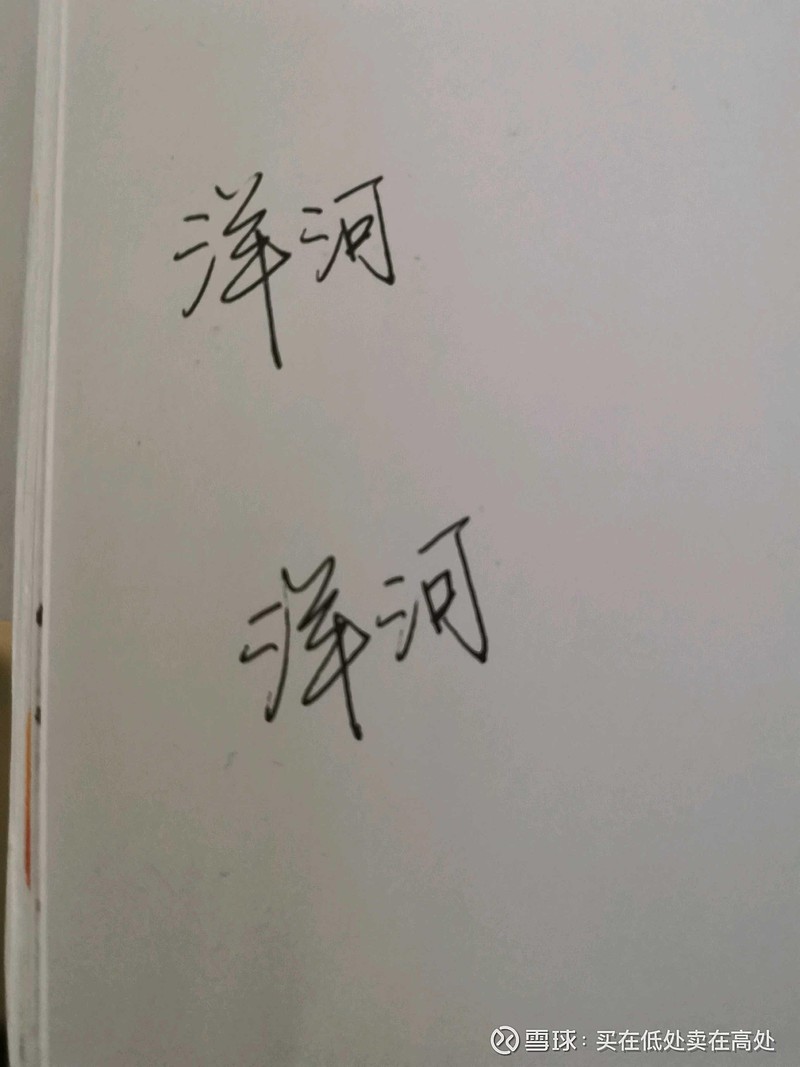 洋河
洋河
雪球：买在低处卖在高处